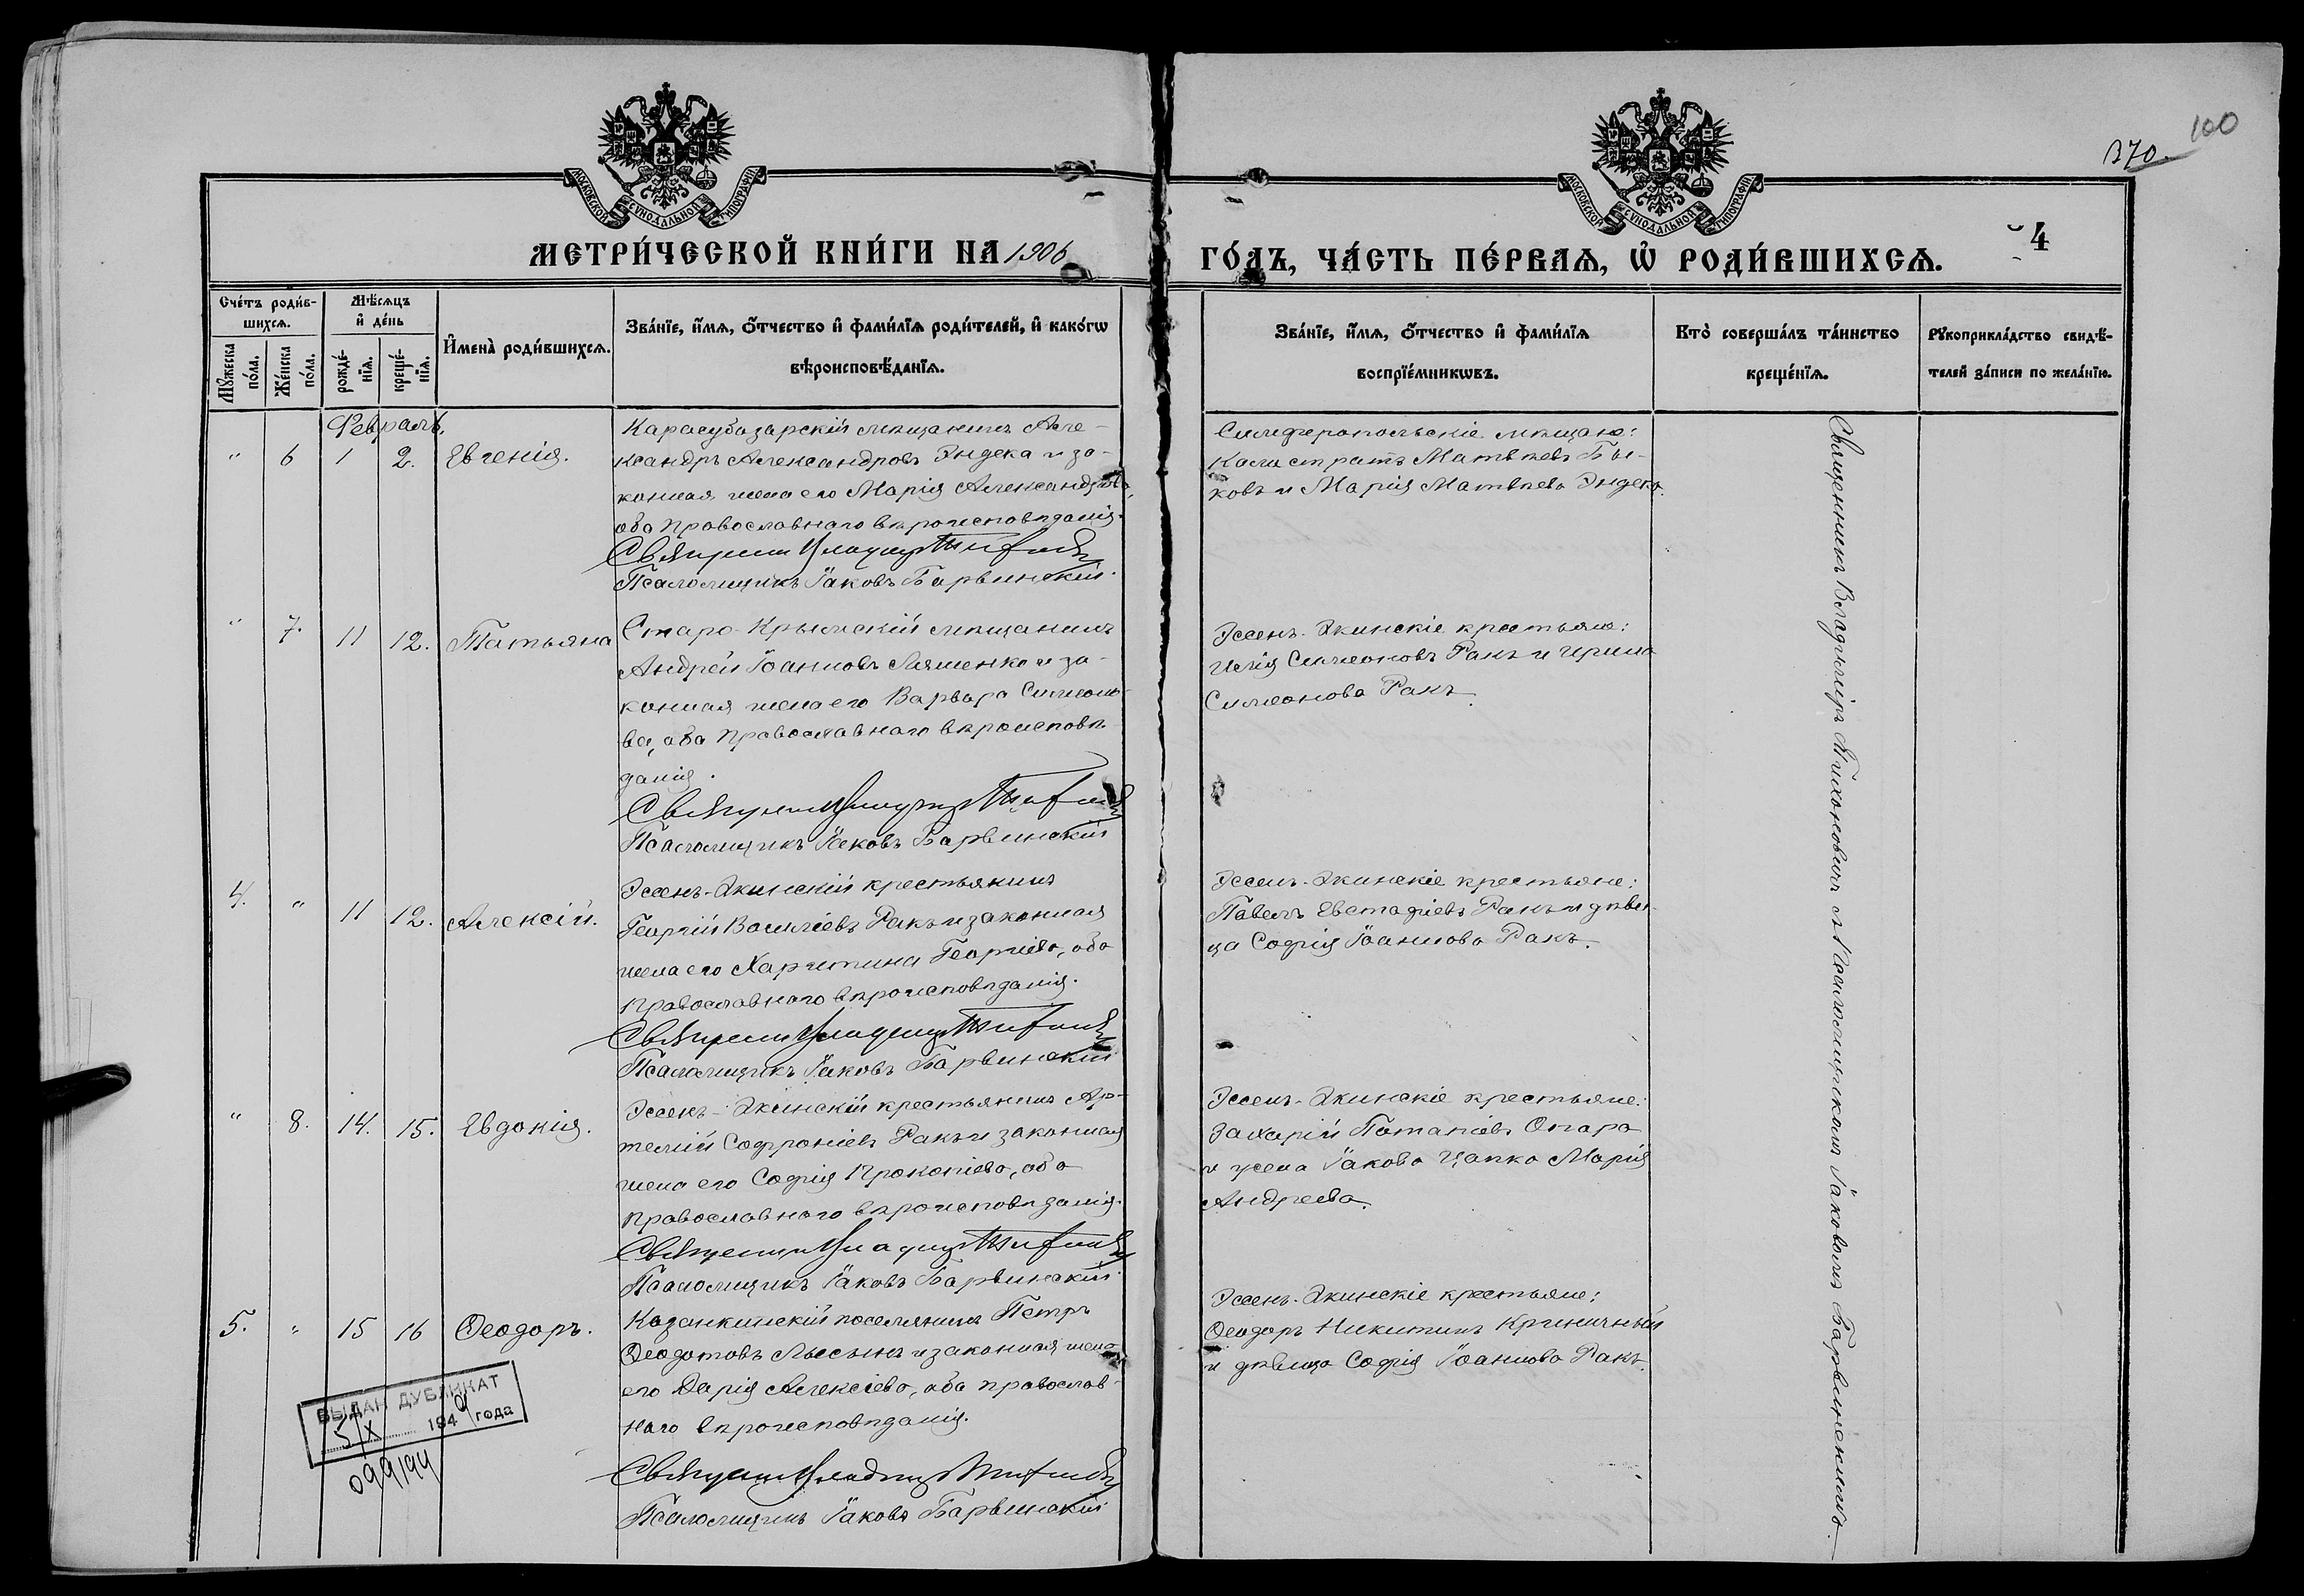 100
370.
МОСКОВСКОЙ СУНОДАЛЬНОЙ ТИПОГРАФІИ
МОСКОВСКОЙ СУНОДАЛЬНОЙ ТИПОГРАФІИ
МЕТРИ́ЧЕСКОЙ КНИ́ГИ НА 1906
ГО́ДЪ, ЧА́СТЬ ПЕ́РВАѦ, Ѡ҆ РОДИ́ВШИХСѦ.
4
Сче́тъ роди́в-
шихсѧ.
Мѣ́сѧцъ
и҆ де́нь
Мꙋ́жеска
по́ла.
Же́нска
по́ла.
рожде́-
нїѧ.
креще́-
нїѧ.
И҆мена̀ роди́вшихсѧ.
Зва́нїе, и҆́мѧ, ѻ҆́тчество и҆ фами́лїѧ роди́телей, и҆ како́гѡ
вѣроисповѣ́данїѧ.
Зва́нїе, и҆́мѧ, ѻ҆́тчество и҆ фами́лїѧ
воспрїе́мникѡвъ.
Кто̀ соверша́лъ та́инство
креще́нїѧ.
Рꙋкоприкла́дство свидѣ́-
телей за́писи по жела́нїю.
Февраль.
" 6 1 2. Евгенія.
Карасубазарскій мѣщанинъ Але-
ксандръ Александровъ Эндека и за-
конная жена его Марія Александрова,
оба православнаго вѣроисповѣданія.
Священникъ Владимиръ Тихоновичъ
Псаломщикъ Іаковъ Барвинскій.
Симферопольскіе мѣщане:
Калистратъ Матвѣевъ Бы-
ковъ и Марія Матвѣева Эндека.
" 7. 11 12. Татьяна
Старо-Крымскій мѣщанинъ
Андрей Іоанновъ Ляшенко и за-
конная жена его Варвара Симеоно-
ва, оба православнаго вѣроисповѣ-
данія.
Священникъ Владимиръ Тихоновичъ
Псаломщикъ Іаковъ Барвинскій
Эссенъ-Экинскіе крестьяне:
Илія Симеоновъ Ракъ и Ирина
Симеонова Ракъ.
4. " 11 12. Алексій.
Эссенъ-Экинскій крестьянинъ
Георгій Василіевъ Ракъ и законная
жена его Харитина Георгіева, оба
православнаго вѣроисповѣданія.
Священникъ Владимиръ Тихоновичъ
Псаломщикъ Іаковъ Барвинскій
Эссенъ-Экинскіе крестьяне:
Павелъ Евстафіевъ Ракъ и дѣви-
ца Софія Іоаннова Ракъ.
" 8. 14. 15. Евдокія.
Эссенъ-Экинскій крестьянинъ Ар-
темій Софроніевъ Ракъ и законная
жена его Софія Прокопіева, оба
православнаго вѣроисповѣданія.
Священникъ Владимиръ Тихоновичъ
Псаломщикъ Іаковъ Барвинскій
Эссенъ-Экинскіе крестьяне:
Захарій Потапіевъ Опара
и жена Іакова Цапко Марія
Андреева.
5. " 15 16 Ѳеодоръ.
Казанкинскій поселянинъ Петръ
Ѳеодотовъ Лысынъ и законная жена
его Дарія Алексіева, оба православ-
наго вѣроисповѣданія.
Священникъ Владимиръ Тихоновичъ
Псаломщикъ Іаковъ Барвинскій
Эссенъ-Экинскіе крестьяне:
Ѳеодоръ Никитинъ Криничный
и дѣвица Софія Іоаннова Ракъ.
Священникъ Владимиръ Тихоновичъ съ псаломщикомъ Іаковомъ Барвинскимъ.
ВЫДАН ДУБЛИКАТ
5/X 1949 года
099194